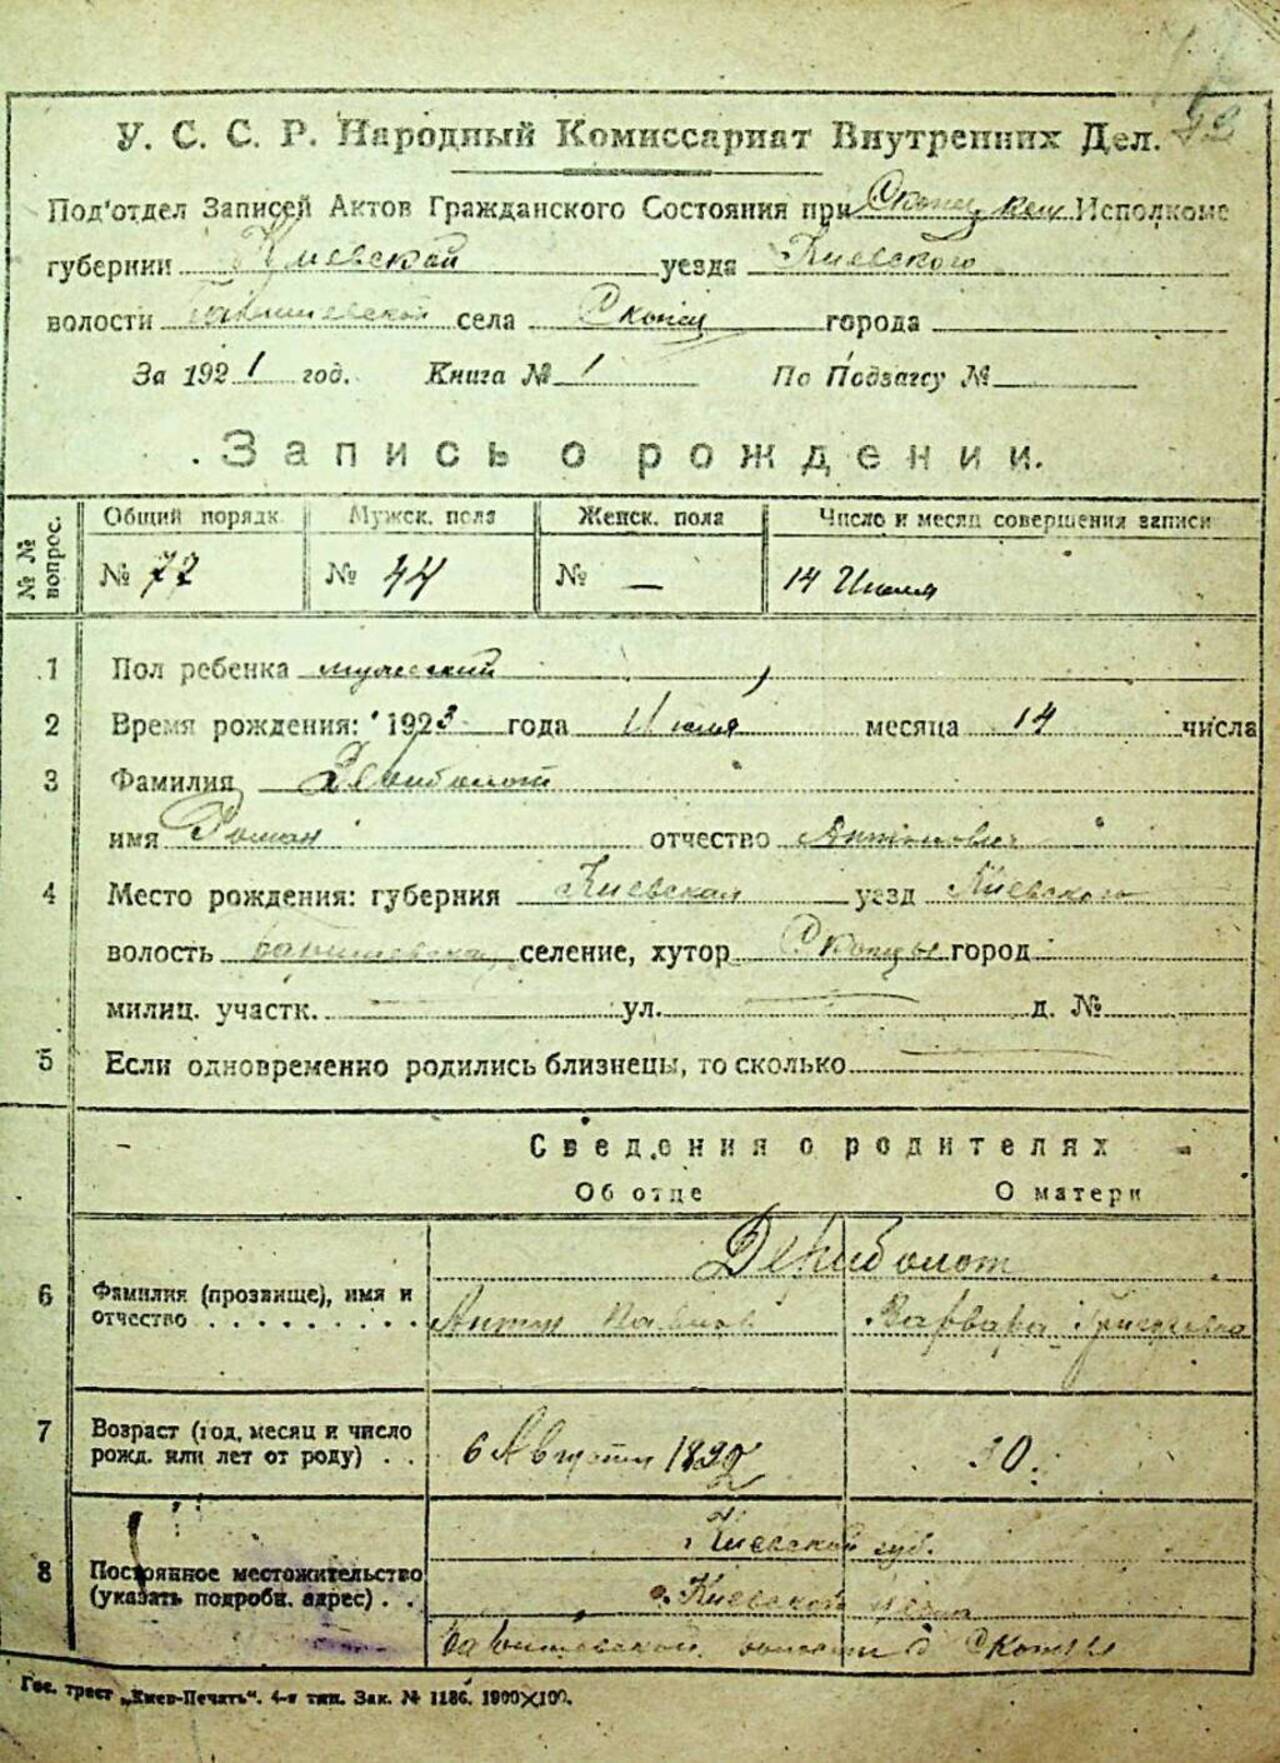 52
У. С. С. Р. Народный Комиссариат Внутренних Дел.
Под'отдел Записей Актов Гражданского Состояния при Исполкоме
губернии Киевской уезда Киевского
волости села Скопцы города
За 1921 год. Книга № 1 По Подзагсу №
Запись о рождении.
№ № вопрос.
Общий порядк. Мужск. пола Женск. пола Число и месяц совершения записи
№ 77 № 44 № — 14 Июля
1 Пол ребенка мужеский
2 Время рождения: 1923 года Июля месяца 14 числа
3 Фамилия
имя Роман отчество Антонович
4 Место рождения: губерния Киевская уезд Киевского
волость селение, хутор Скопцы город
милиц. участк. ул. д. №
5 Если одновременно родились близнецы, то сколько
Сведения о родителях
Об отце О матери
6 Фамилия (прозвище), имя и
отчество . . . . . . . . . Антон Варвара
7 Возраст (год, месяц и число
рожд. или лет от роду) . . 6 Августа 1892 30.
Киевской губ.
8 Постоянное местожительство
(указать подробн. адрес) . . Киевской
волости Скопцы
Гос. трест „Киев-Печать“. 4-я тип. Зак. № 1186. 1900×100.